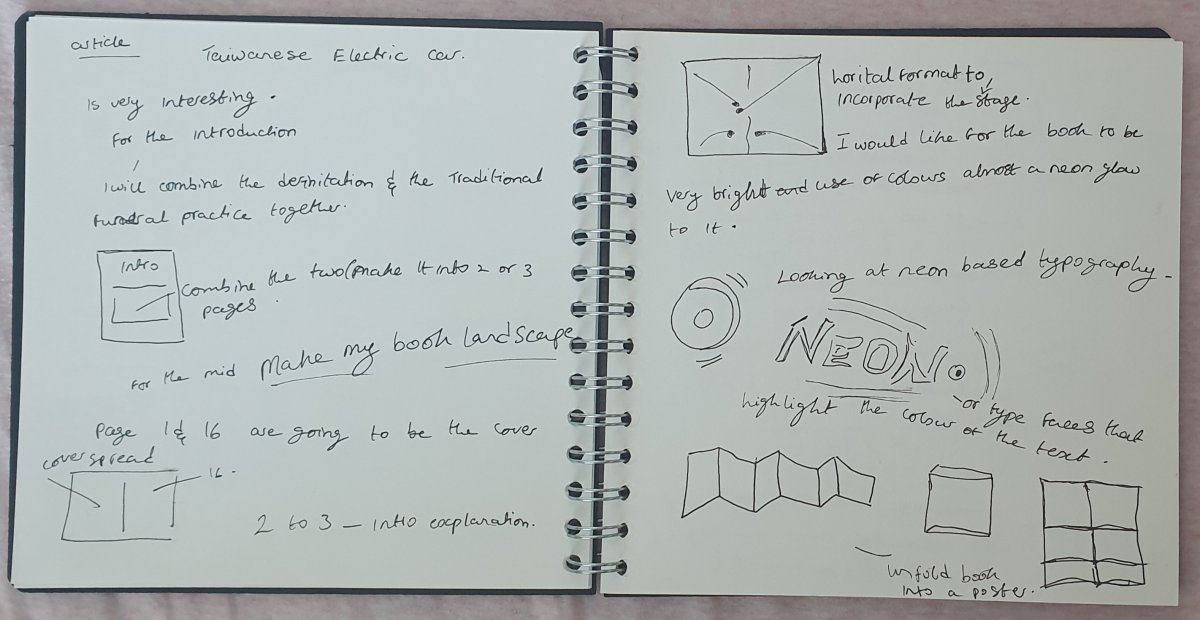 article
Taiwanese Electric car.
Is very interesting.
For the introduction
I will combine the definitation & the Traditional
funeral practice together.
Intro
Combine the two (make it into 2 or 3
pages.
For the mid Make my book landscape
Page 1 & 16 are going to be the cover
cover spread
16.
2 to 3 - intro explanation.
horital format to,
incorporate the stage.
I would like for the book to be
very bright and use of colours almost a neon glow
to it.
Looking at neon based typography -
NEON.
or type faces that
highlight the colour of the text.
unfold book
into a poster.